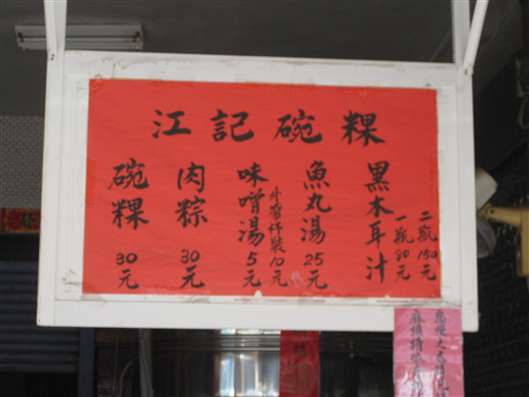 江記碗粿
黑木耳汁
二瓶150元
一瓶80元
魚丸湯25元
味噌湯5元
外帶杯裝10元
肉粽30元
碗粿30元